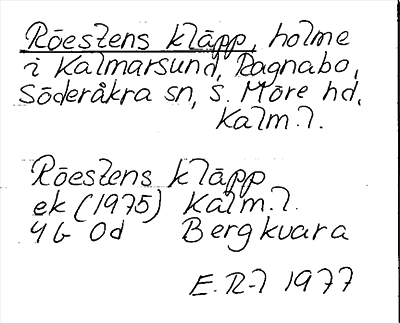 Röestens kläpp, holme
i Kalmarsund, Ragnabo,
Söderåkra sn, S. Möre hd,
Kalm.l.
Röestens kläpp
ek (1975) Kalm.l.
4G 0d Bergkvara
E.R-l 1977